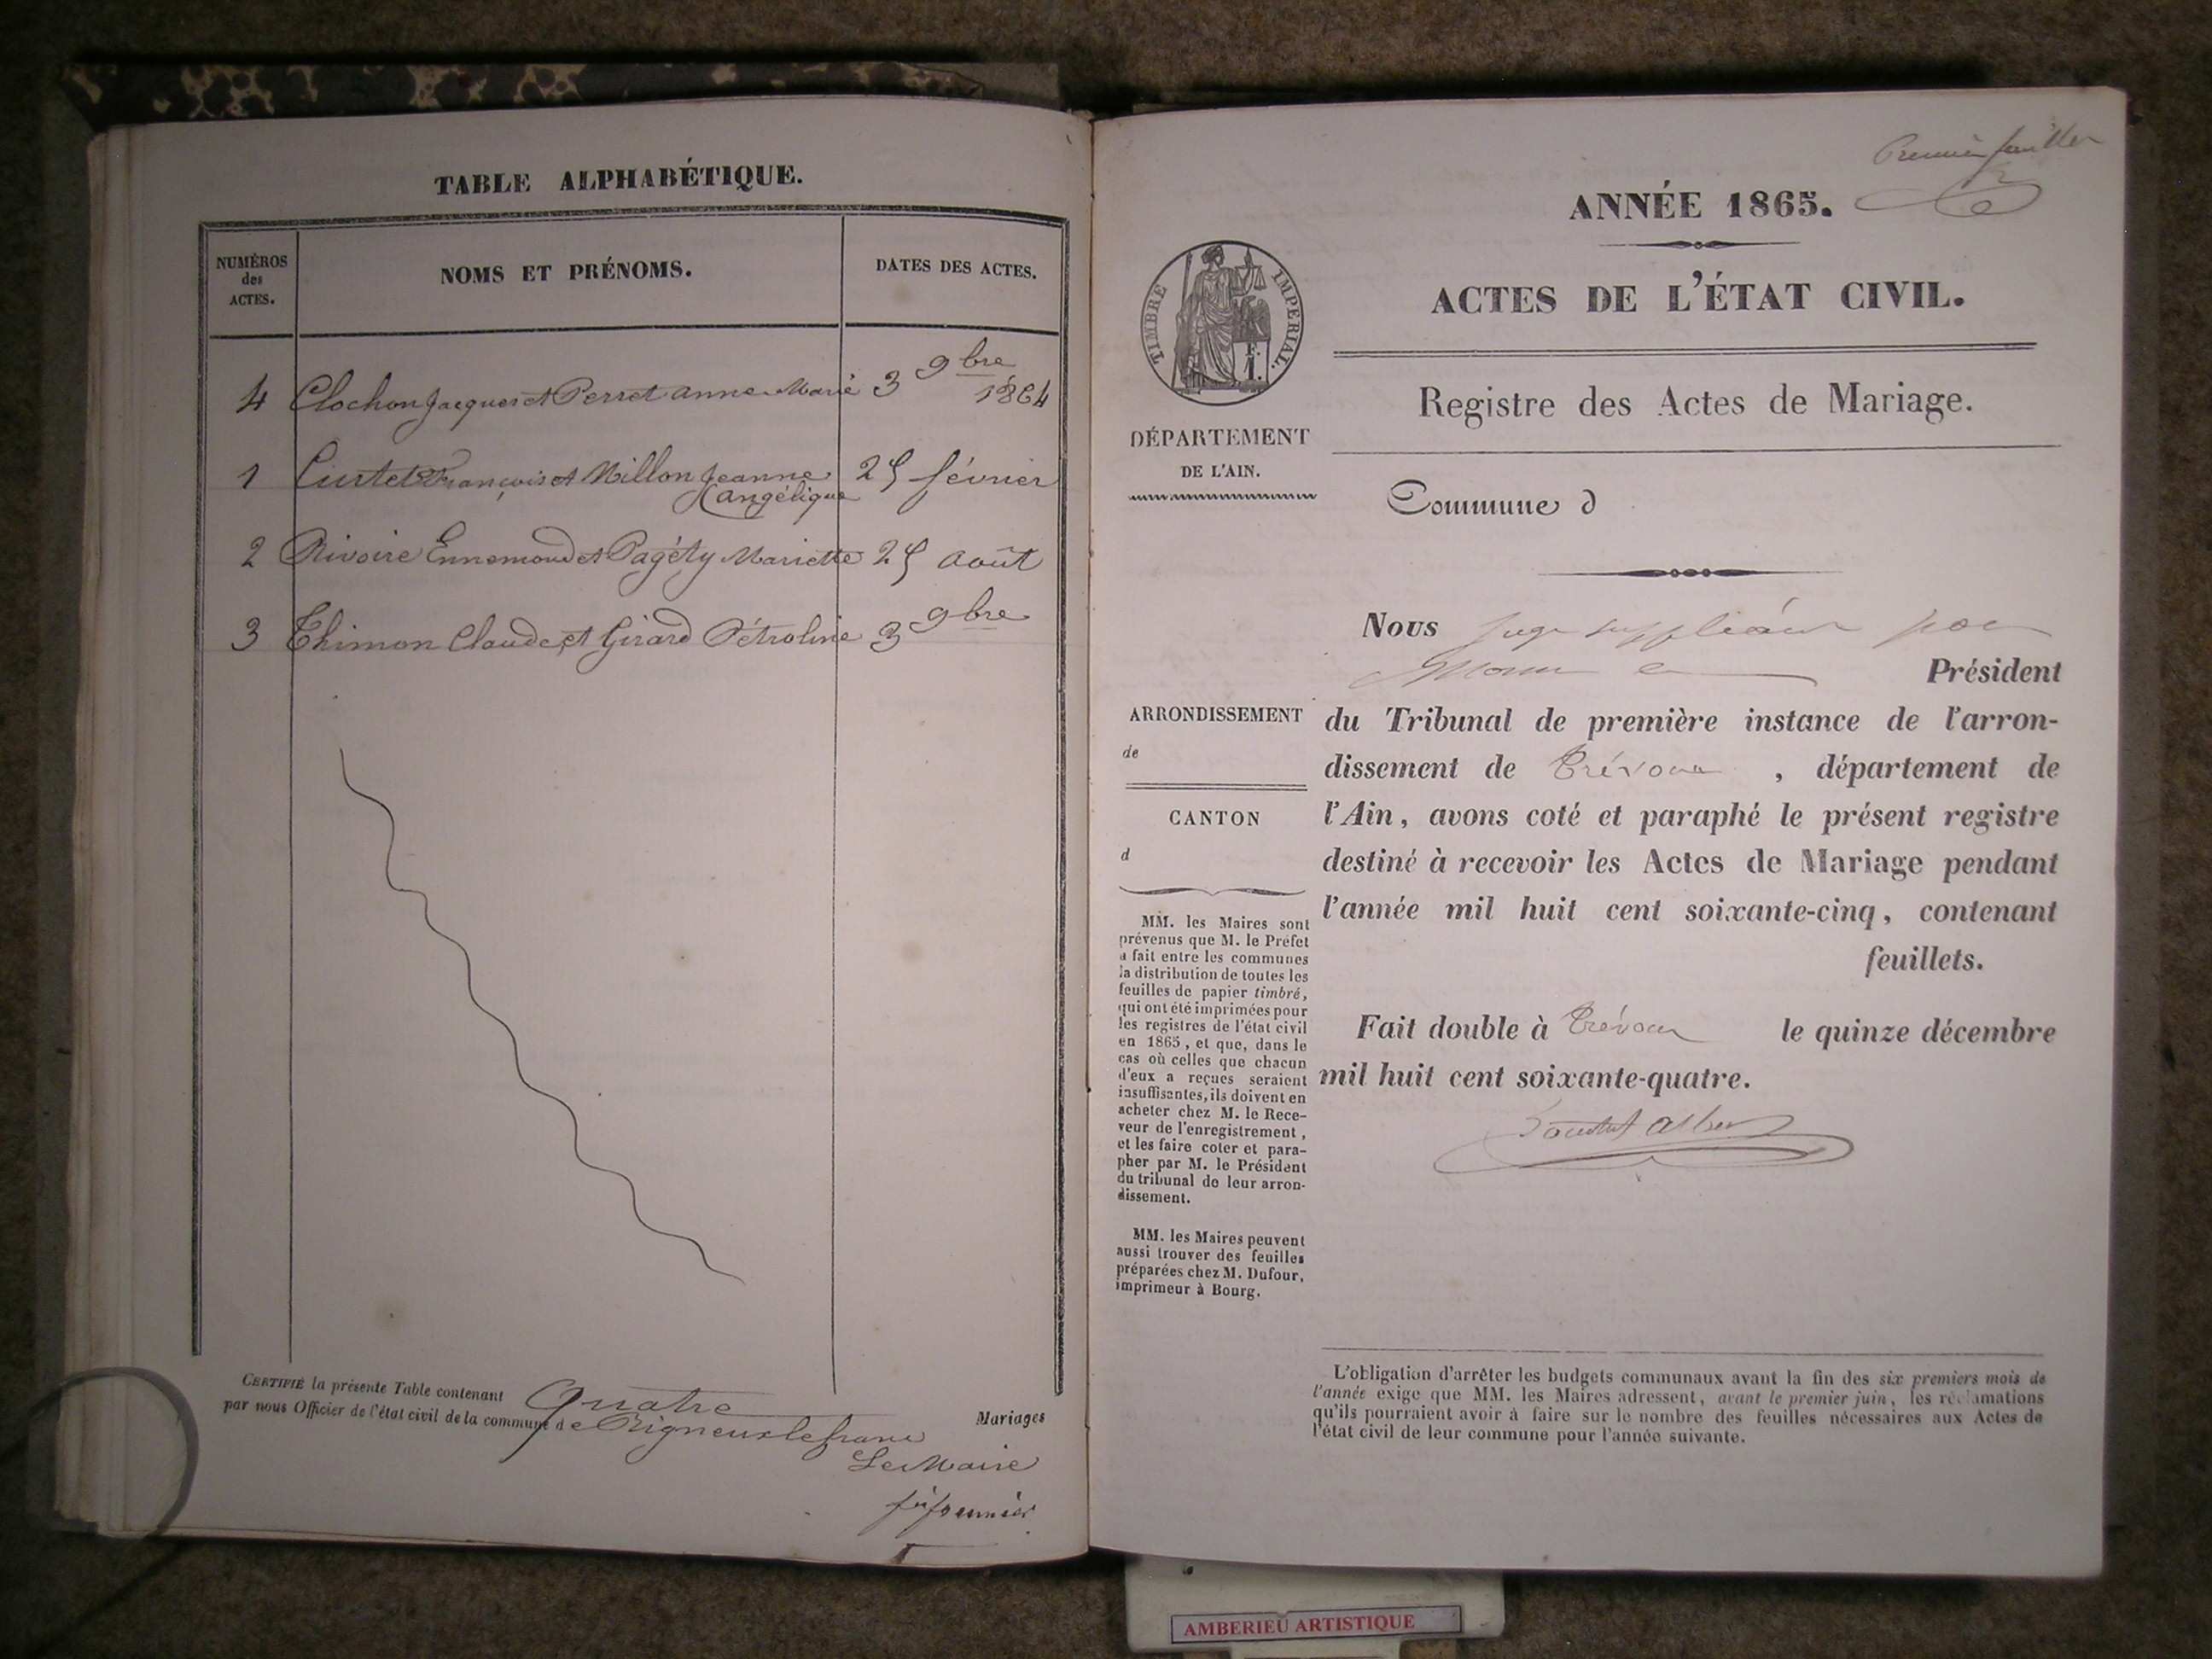 TABLE ALPHABÉTIQUE.
NUMÉROS
des
ACTES.
NOMS ET PRÉNOMS.
DATES DES ACTES.
4 Clochon Jacques et Perret anne Marie 3 9bre 1864
1 Curtet François et Millon Jeanne 25 février
angélique
2 Rivoire Ennemond et Pagéty Mariette 25 août
3 Thimon Claude et Girard Pétroline 3 9bre
CERTIFIÉ la présente Table contenant Quatre Mariages
par nous Officier de l'état civil de la commune de Rigneux le franc
Le Maire
Premier feuillet
ANNÉE 1865.
ACTES DE L'ÉTAT CIVIL.
Registre des Actes de Mariage.
TIMBRE IMPERIAL.
DÉPARTEMENT
DE L'AIN.
Commune d
Nous Juge suppléant pour
Président
ARRONDISSEMENT
de
CANTON
d
du Tribunal de première instance de l'arron-
dissement de Trévoux, département de
l'Ain, avons coté et paraphé le présent registre
destiné à recevoir les Actes de Mariage pendant
l'année mil huit cent soixante-cinq, contenant
feuillets.
Fait double à Trévoux le quinze décembre
mil huit cent soixante-quatre.
MM. les Maires sont
prévenus que M. le Préfet
a fait entre les communes
la distribution de toutes les
feuilles de papier timbré,
qui ont été imprimées pour
les registres de l'état civil
en 1865, et que, dans le
cas où celles que chacun
d'eux a reçues seraient
insuffisantes, ils doivent en
acheter chez M. le Rece-
veur de l'enregistrement,
et les faire coter et para-
pher par M. le Président
du tribunal de leur arron-
dissement.
MM. les Maires peuvent
aussi trouver des feuilles
préparées chez M. Dufour,
imprimeur à Bourg.
L'obligation d'arrêter les budgets communaux avant la fin des six premiers mois de
l'année exige que MM. les Maires adressent, avant le premier juin, les réclamations
qu'ils pourraient avoir à faire sur le nombre des feuilles nécessaires aux Actes de
l'état civil de leur commune pour l'année suivante.
AMBERIEU ARTISTIQUE